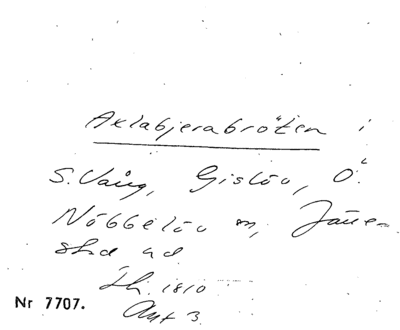 Axlabjerabröten i
S. Vång, Gislöv, Ö.
Nöbbelöv m, Järre-
stad hd
Sk. 1810
Akt 3
Nr 7707.